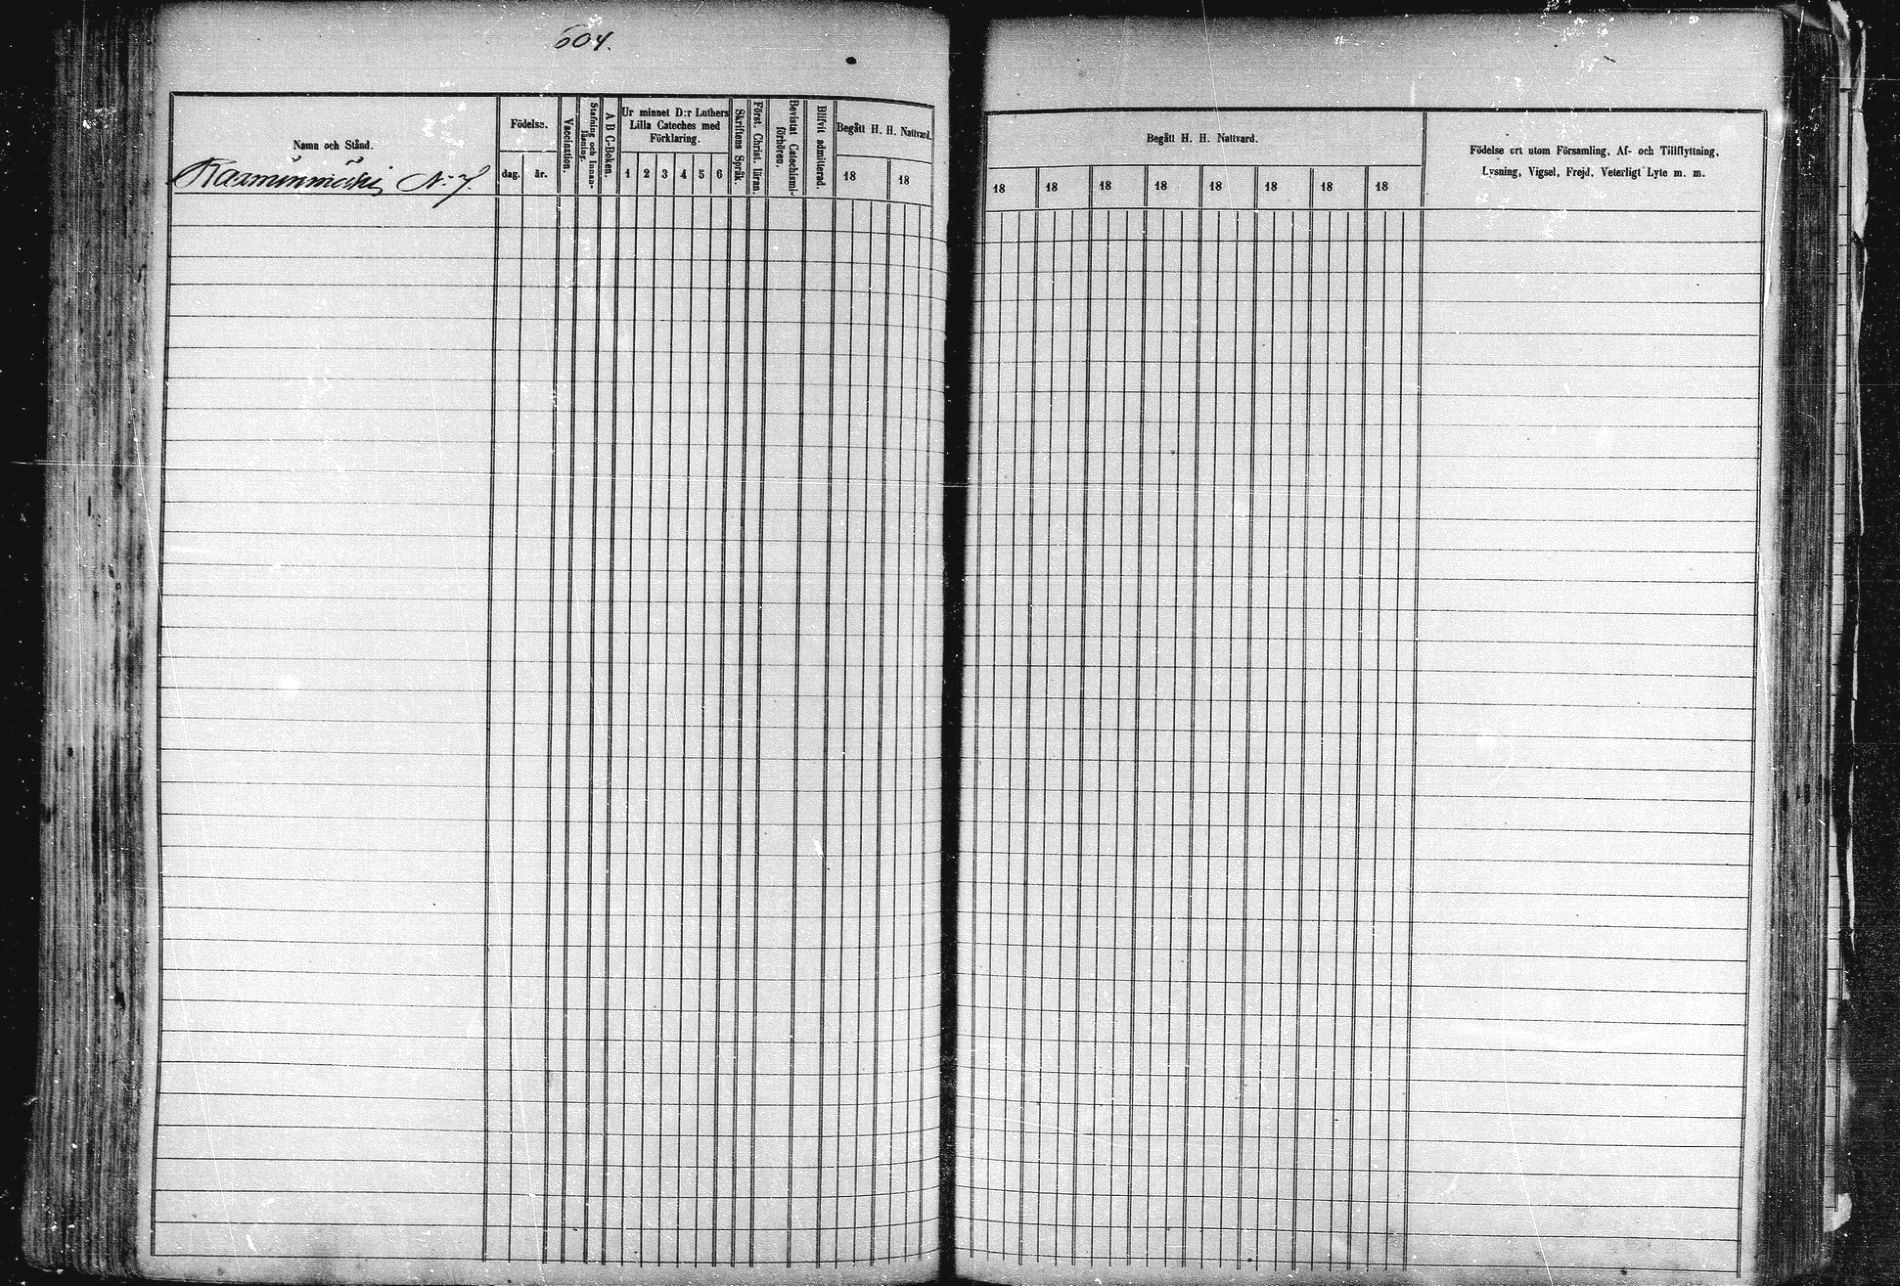 604.
Namn och Stånd.
Födelse.
dag.
år.
Vaccination.
Stafning och Innanläsning.
A B C-Boken.
Ur minnet D:r Luthers
Lilla Cateches med
Förklaring.
1 2 3 4 5 6
Skriftens Språk.
Först. Christ. läran.
Bevistat Catechismi-
förhören.
Blifvit admitterad.
Begått H. H. Nattvard.
18 18
N:o 7.
Begått H. H. Nattvard.
18 18 18 18 18 18 18 18
Födelse ort utom Församling, Af- och Tillflyttning,
Lysning, Vigsel, Frejd, Veterligt Lyte m. m.